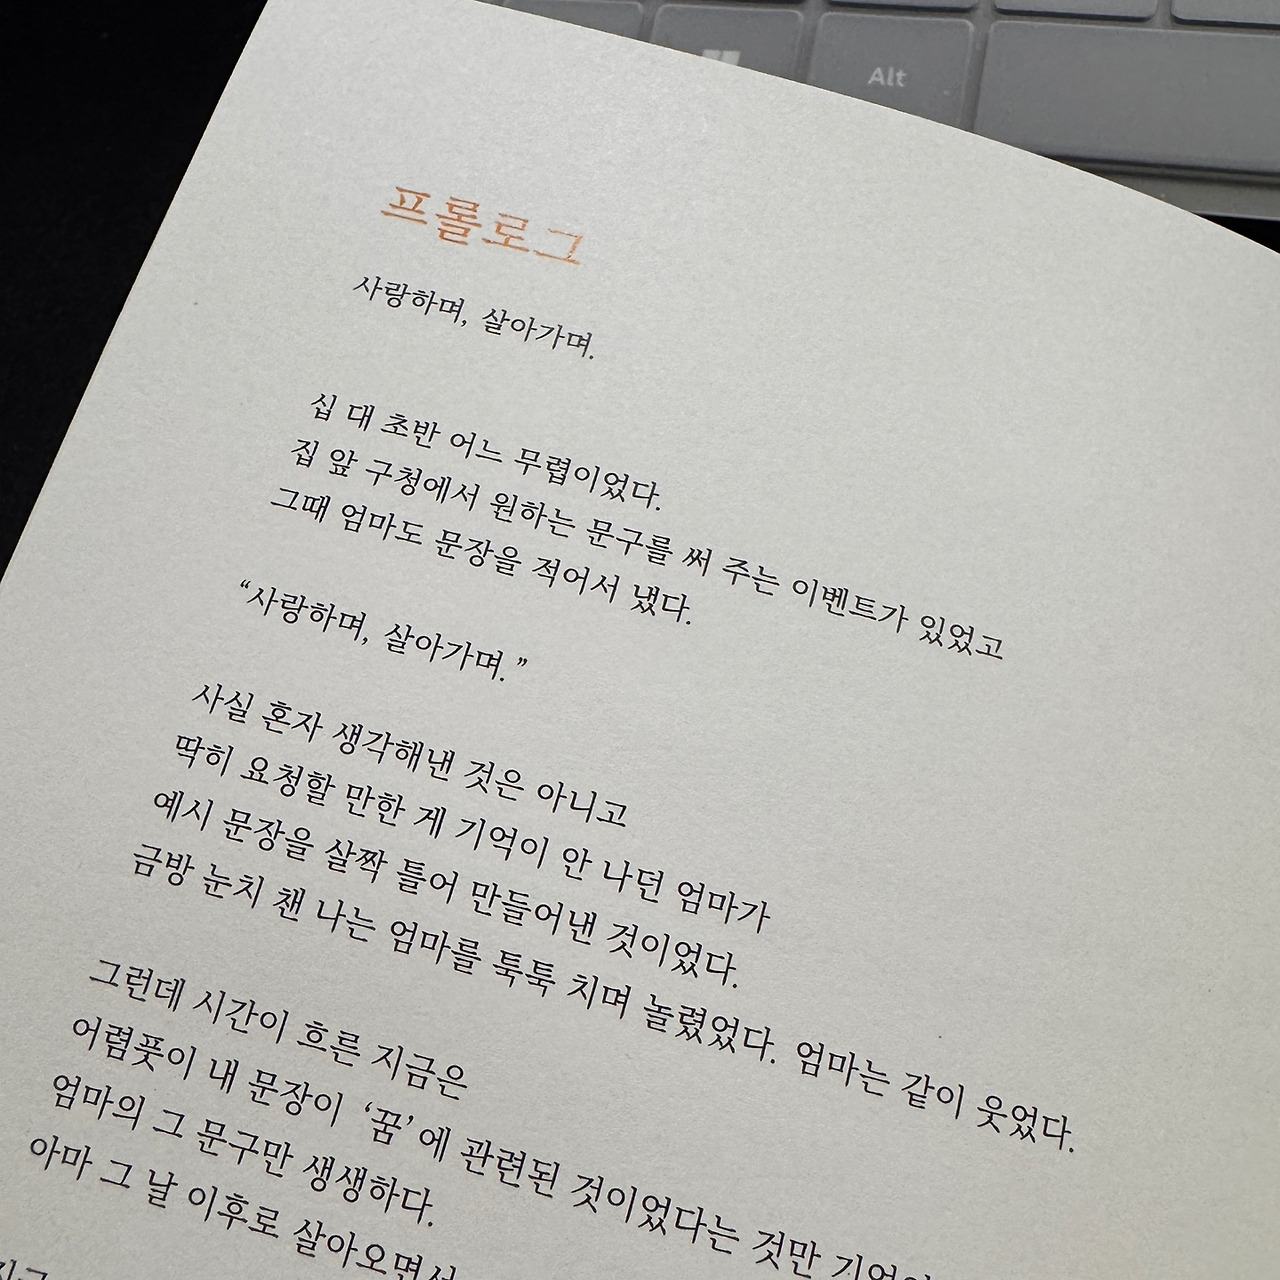 Alt
프롤로그
사랑하며, 살아가며.
십 대 초반 어느 무렵이었다.
집 앞 구청에서 원하는 문구를 써 주는 이벤트가 있었고
그때 엄마도 문장을 적어서 냈다.
“사랑하며, 살아가며.”
사실 혼자 생각해낸 것은 아니고
딱히 요청할 만한 게 기억이 안 나던 엄마가
예시 문장을 살짝 틀어 만들어낸 것이었다.
금방 눈치 챈 나는 엄마를 툭툭 치며 놀렸었다. 엄마는 같이 웃었다.
그런데 시간이 흐른 지금은
어렴풋이 내 문장이 ‘꿈’에 관련된 것이었다는 것만
엄마의 그 문구만 생생하다.
아마 그 날 이후로 살아오면서